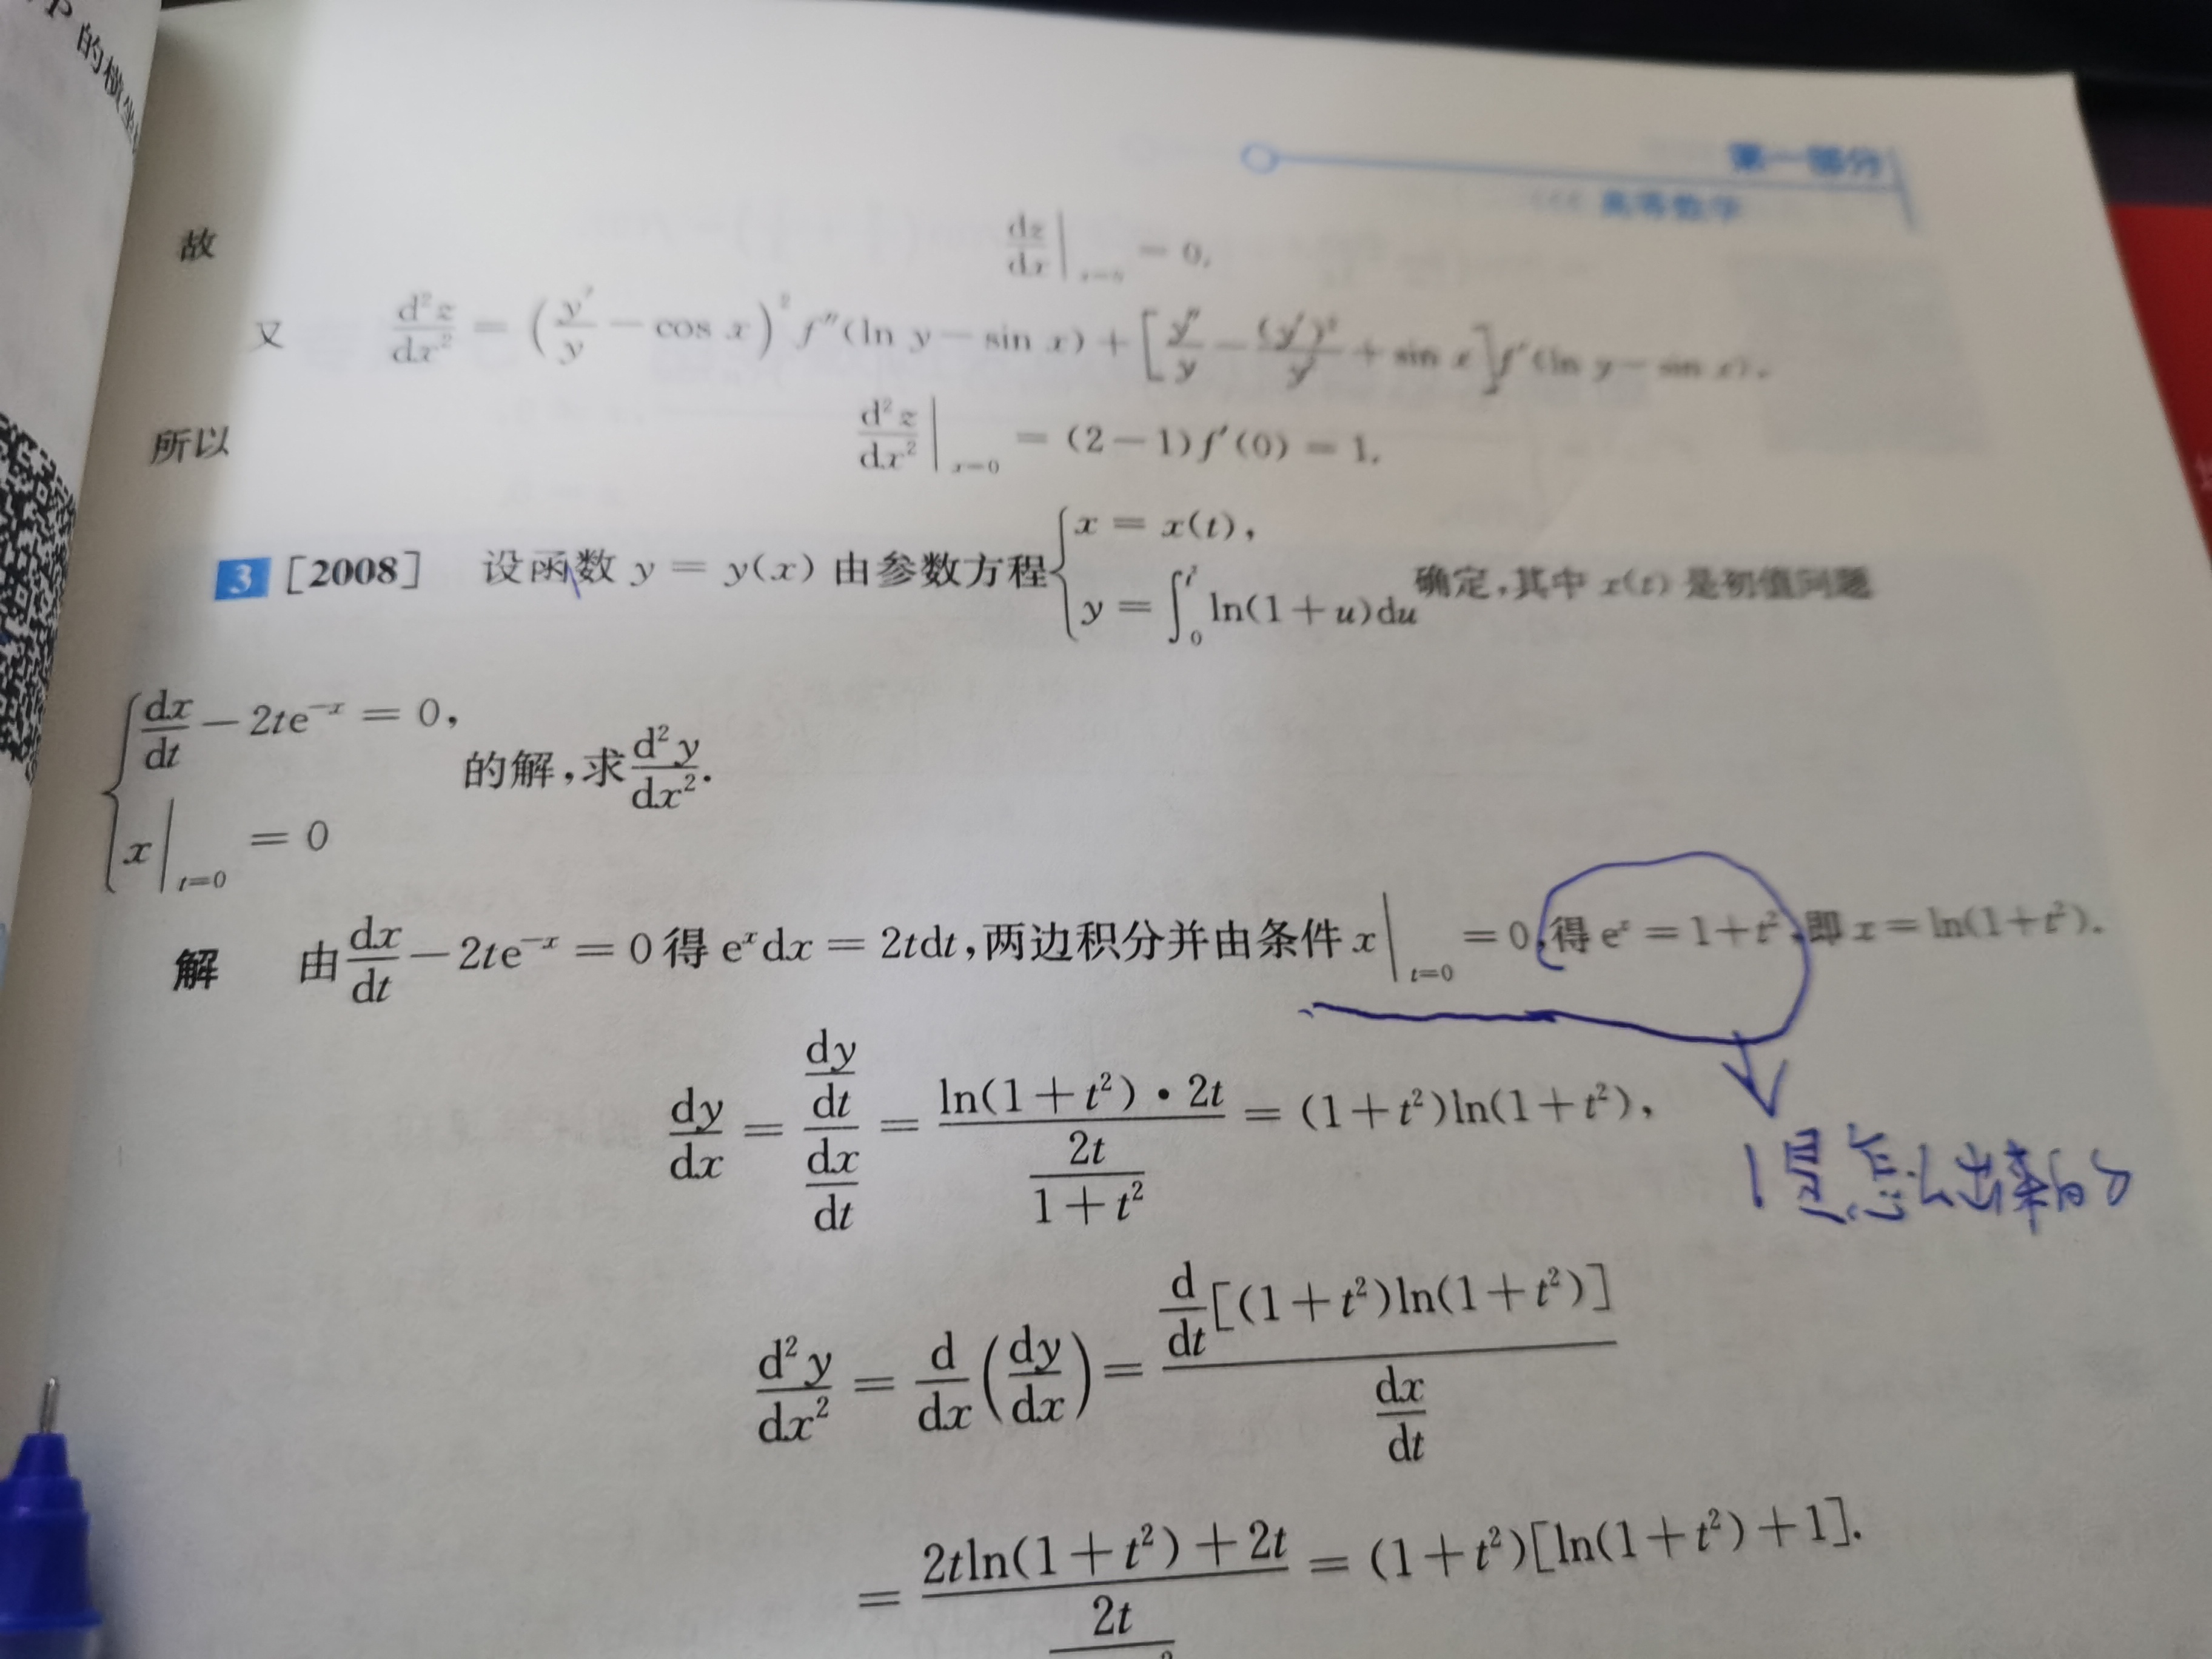 的横坐
第一部分
高等数学
故 dz/dx|x=0 = 0.
又 d²z/dx² = (y′/y − cos x)² f″(ln y − sin x) + [y″/y − (y′)²/y² + sin x] f′(ln y − sin x).
所以 d²z/dx²|x=0 = (2−1)f′(0) = 1.
3 [2008] 设函数 y = y(x) 由参数方程 { x = x(t), y = ∫₀^{t²} ln(1+u)du 确定,其中 x(t) 是初值问题
{ dx/dt − 2te⁻ˣ = 0, x|t=0 = 0 的解,求 d²y/dx².
解 由 dx/dt − 2te⁻ˣ = 0 得 eˣdx = 2tdt,两边积分并由条件 x|t=0 = 0,得 eˣ = 1+t²,即 x = ln(1+t²).
dy/dx = (dy/dt)/(dx/dt) = (ln(1+t²)·2t)/(2t/(1+t²)) = (1+t²)ln(1+t²),
1是怎么出来的
d²y/dx² = d/dx(dy/dx) = (d/dt[(1+t²)ln(1+t²)])/(dx/dt)
= (2tln(1+t²)+2t)/(2t = (1+t²)[ln(1+t²)+1].